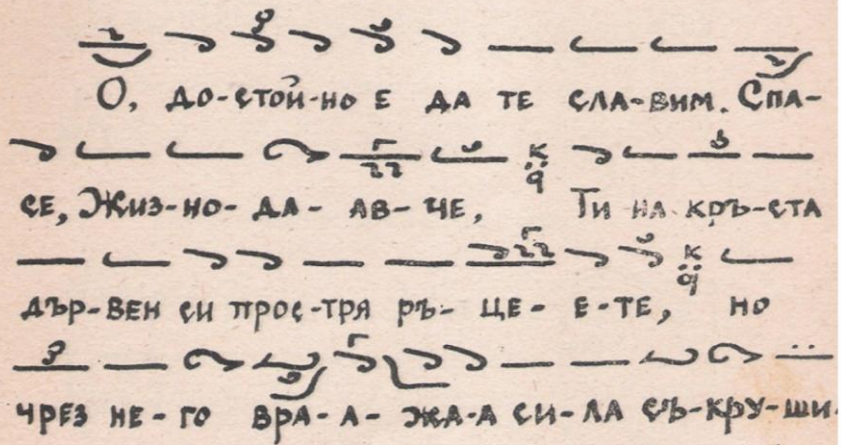 О, до-стой-но е да те сла-вим. Спа-
се, Жиз-но-да-ав-че, Ти на кръ-ста
дър-вен си прос-тря ръ-це-е-те, но
чрез не-го вра-а-жа-а си-ла съ-кру-ши-